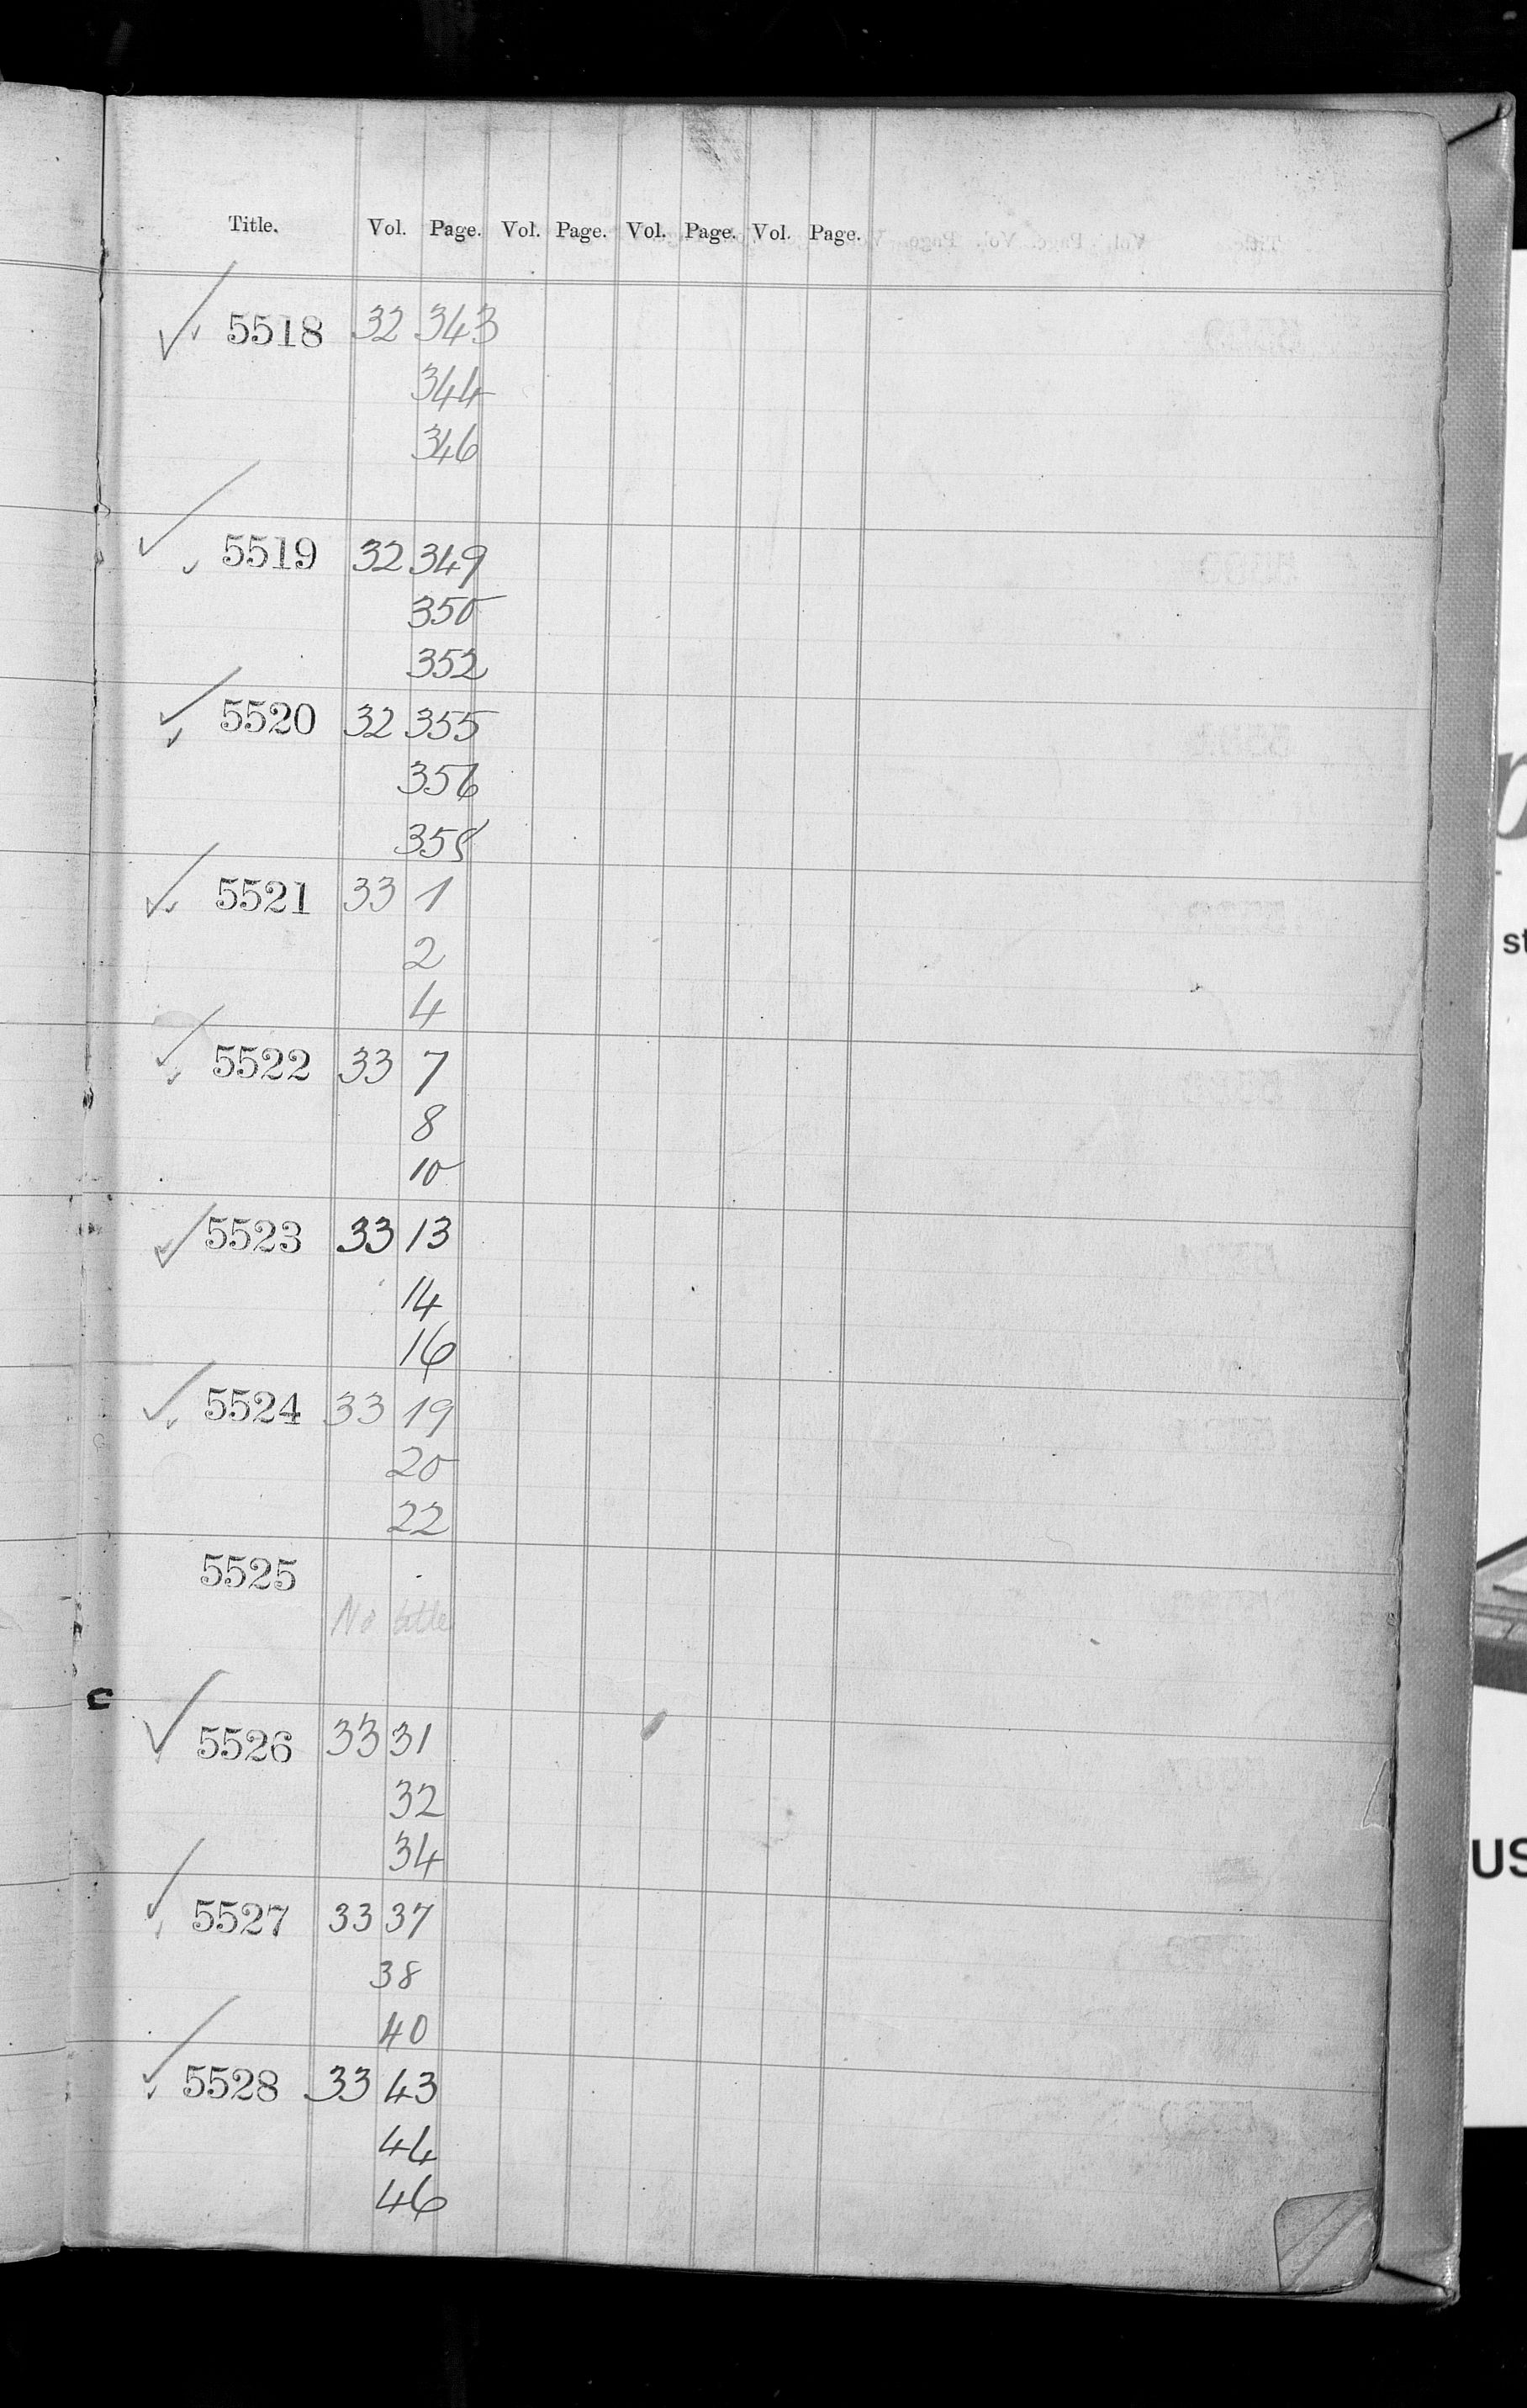 Title. Vol. Page. Vol. Page. Vol. Page. Vol. Page.
5518 32 343
344
346
5519 32 349
350
352
5520 32 355
356
358
5521 33 1
2
4
5522 33 7
8
10
5523 33 13
14
16
5524 33 19
20
22
5525
No title
5526 33 31
32
34
5527 33 37
38
40
5528 33 43
44
46
st
US